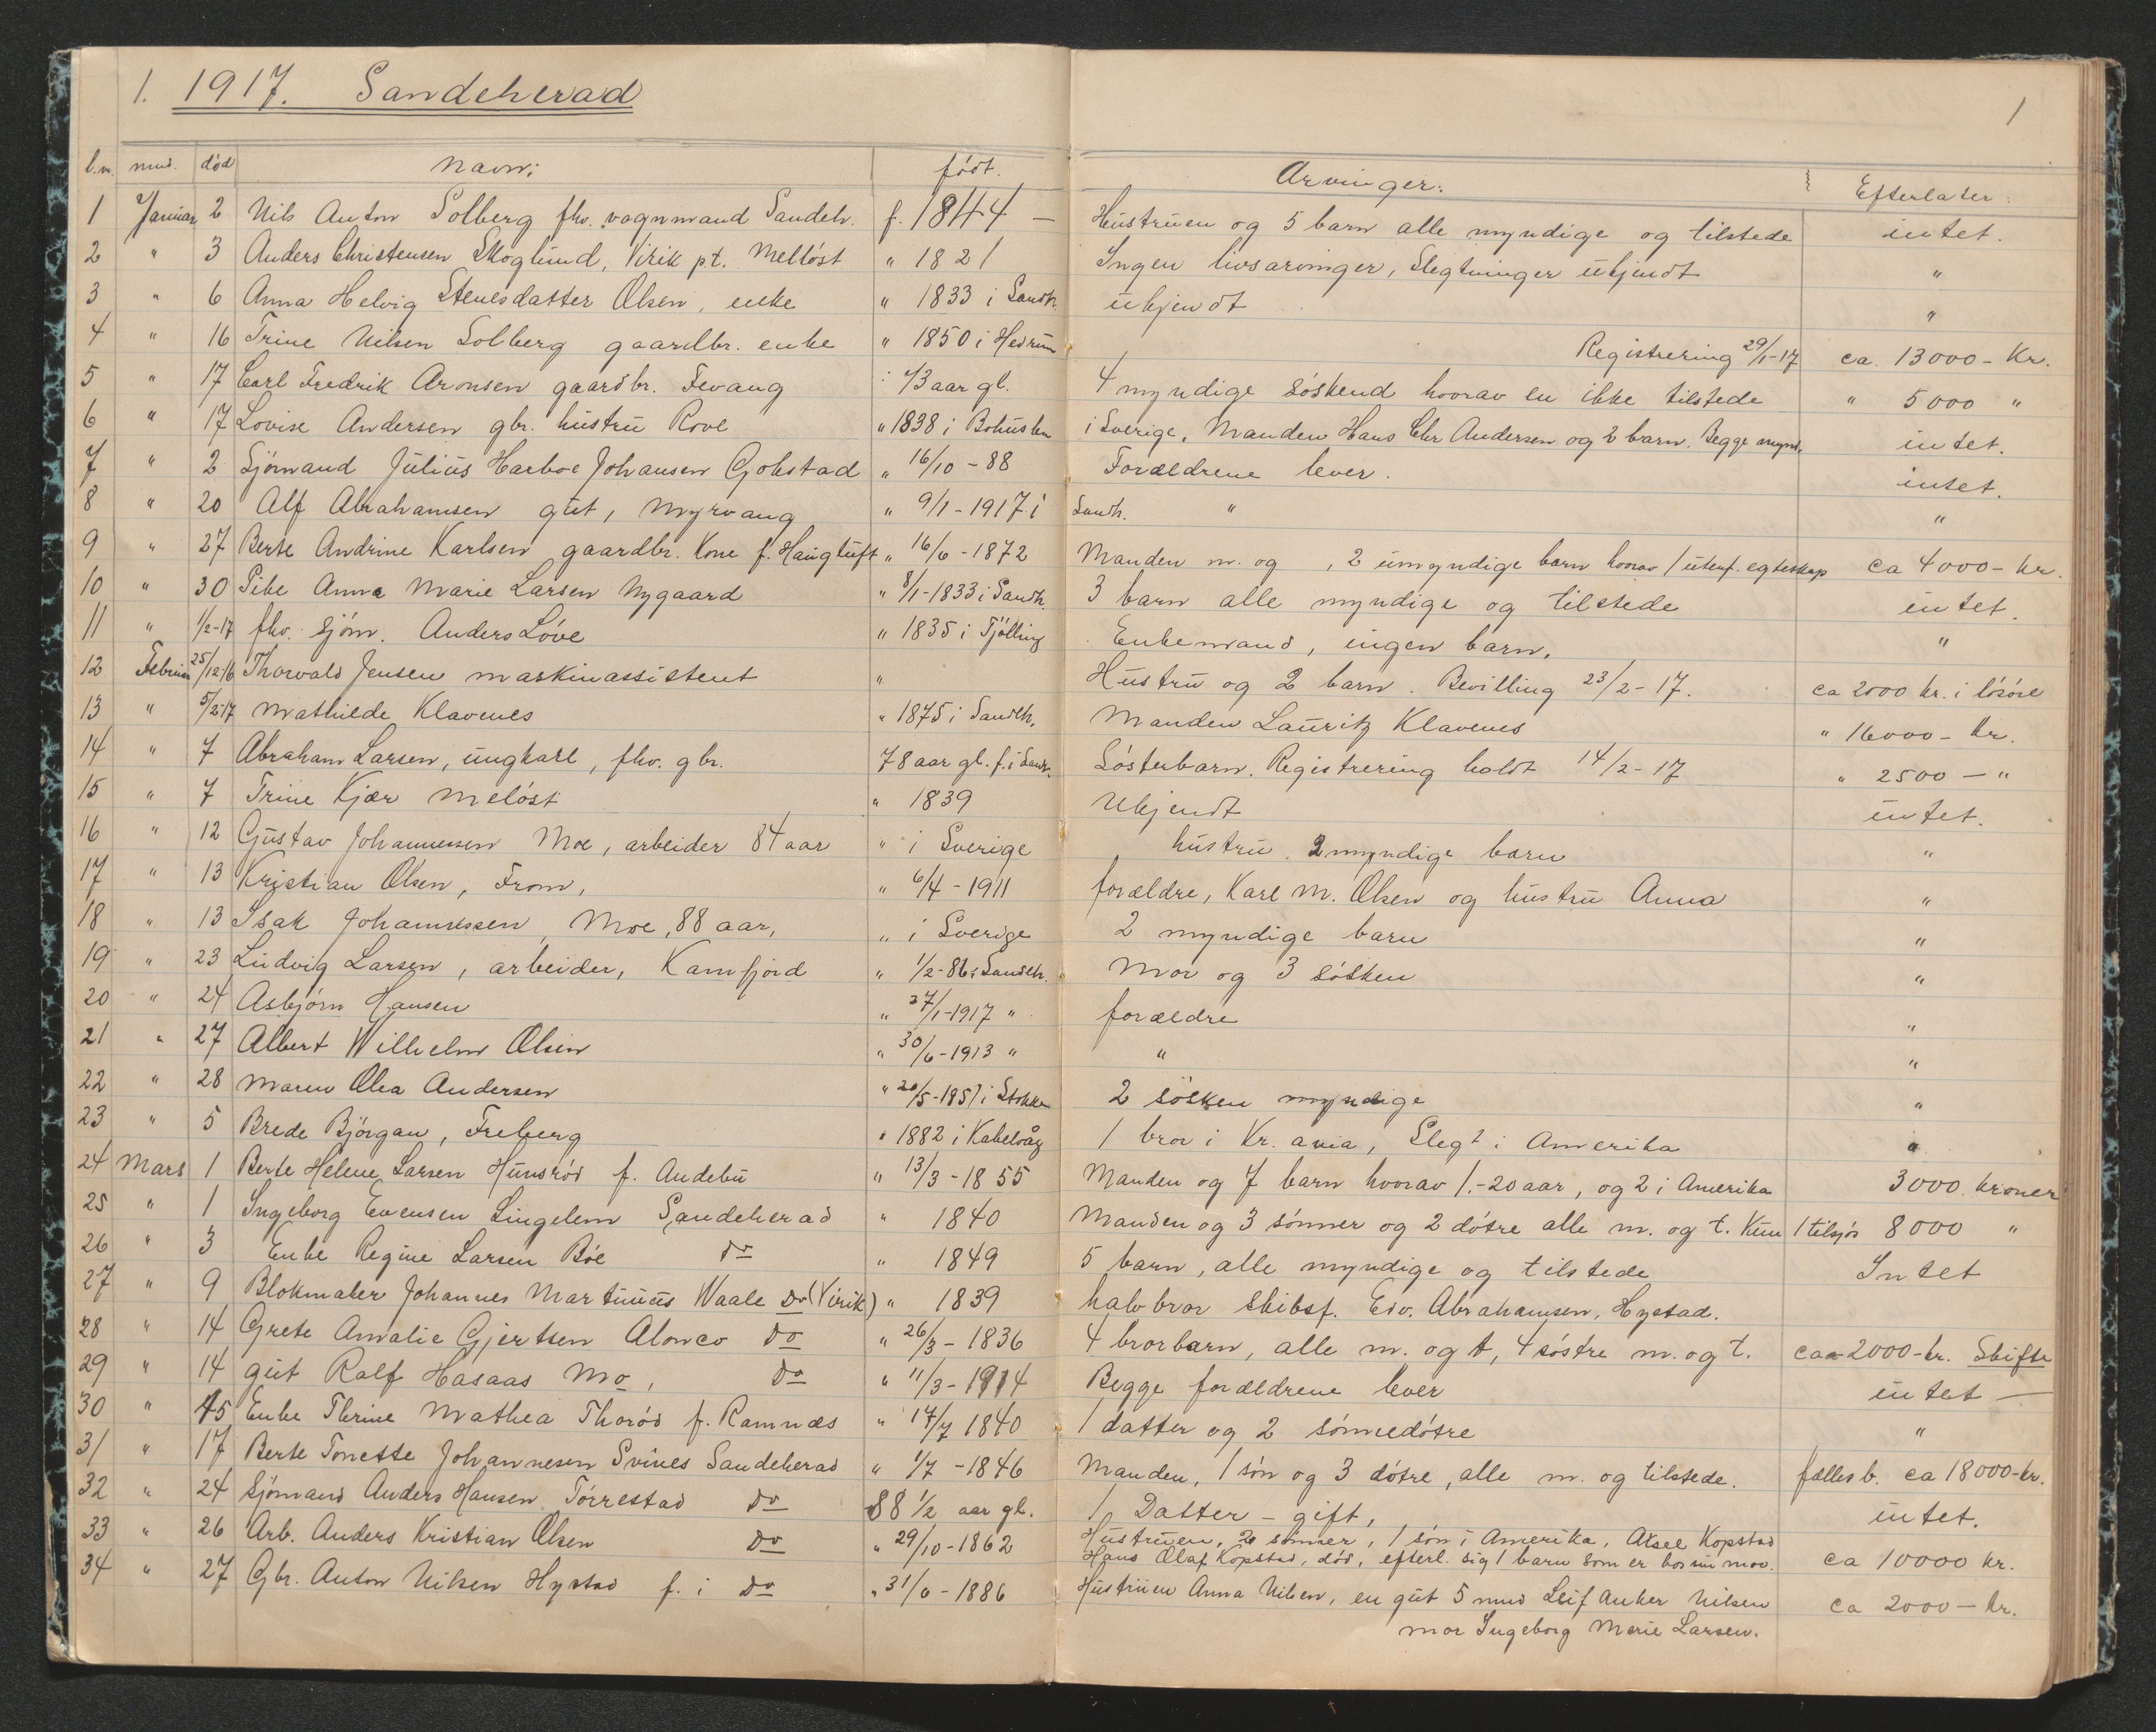 1. 1917. Sandeherad
1
l.n. mnd. død Navn: født. Arvinger: Efterlater:
1 Januar 2 Nils Anton Solberg fhv. vognmand Sandeh. f. 1844 — Hustruen og 5 barn alle myndige og tilstede intet.
2 " 3 Anders Christensen Skoglund, Virik pt. Melløst " 1821 Ingen livsarvinger, Slegtninger ukjendt "
3 " 6 Anna Helvig Stenesdatter Olsen, enke " 1833 i Sandh. ukjendt "
4 " 16 Trine Nilsen Solberg gaardbr. enke " 1850 i Hedrum Registrering 29/1-17 ca. 13000- Kr.
5 " 17 Carl Fredrik Aronsen gaardbr. Fevang : 43 aar gl. 4 myndige søskend hvorav en ikke tilstede " 5000 "
6 " 17 Lovise Andersen gbr. hustru Rove " 1838 i Bohuslen i Sverige, Manden Hans Chr Andersen og 2 barn. Begge mynd. intet.
7 " 2 Sjømand Julius Harboe Johansen Gokstad " 16/10 - 88 Forældrene lever. intet.
8 " 20 Alf Abrahamsen gut, Myrvang " 9/1 - 1917 i Sandh. " "
9 " 27 Berte Andrine Karlsen gaardbr. Kone f. Haugtuft " 16/6 - 1872 Manden m. og , 2 umyndige barn hvorav 1 utenf. egteskap ca 4000- kr.
10 " 30 Pike Anna Marie Larsen Nygaard " 8/1-1833 i Sandh. 3 barn alle myndige og tilstede intet.
11 " 1/2-17 fhv. sjøm. Anders Løve " 1835 i Tjølling Enkemand, ingen barn. "
12 Februar 25/12-16 Thorvald Jensen maskinassistent " Hustru og 2 barn. Bevilling 23/2-17. ca 2000 kr. i løsøre
13 " 5/2-17 Mathilde Klavenes " 1875 i Sandeh. Manden Lauritz Klavenes " 16000- kr.
14 " 7 Abraham Larsen, ungkarl, fhv. gbr. 78 aar gl. f. i Sandh. Søsterbarn. Registrering holdt 14/2-17 " 2500 — "
15 " 7 Trine Kjær Meløst " 1839 Ukjendt intet.
16 " 12 Gustav Johannessen Moe, arbeider 84 aar " i Sverige hustru, 2 myndige barn "
17 " 13 Kristian Olsen, From, " 6/4 - 1911 forældre, Karl M. Olsen og hustru Anna "
18 " 13 Isak Johannessen, Moe, 88 aar, " i Sverige 2 myndige barn "
19 " 23 Ludvig Larsen, arbeider, Kamfjord " 1/2-86 i Sandeh. Mor og 3 søsken "
20 " 24 Asbjørn Hansen " 27/1-1917 " forældre "
21 " 27 Albert Wilhelm Olsen " 30/6-1913 " " "
22 " 28 Maren Olea Andersen " 20/5-1857 i Stokke 2 søsken myndige "
23 " 5 Brede Bjørgan, Freberg " 1882 i Kabelvåg 1 bror i Kr.ania, Slegt i Amerika "
24 Mars 1 Berte Helene Larsen Hunsrød f. Andebu " 13/3 - 1855 Manden og 7 barn hvorav 1.-20 aar, og 2 i Amerika 3000 kroner
25 " 1 Ingeborg Evensen Lingelem Sandeherad " 1840 Manden og 3 sønner og 2 døtre alle m. og t. Kun 1 tilsjøs 8000 "
26 " 3 Enke Regine Larsen Bøe do " 1849 5 barn, alle myndige og tilstede Intet
27 " 9 Blokmaker Johannes Martinius Waale do (Virik) " 1839 halvbror skibsf. Edv. Abrahamsen, Hystad.
28 " 14 Grete Amalie Gjertsen Alonco do " 26/3 - 1836 4 brorbarn, alle m. og t, 4 søstre m. og t. caa 2000-kr. Skifte
29 " 14 gut Ralf Hasaas Mo, do " 11/3-1914 Begge forældrene lever intet —
30 " 15 Enke Thrine Mathea Thorød f. Ramnæs " 17/7 1840 1 datter og 2 sønnedøtre "
31 " 17 Berte Tonette Johannesen Svines Sandeherad " 1/7 - 1846 Manden, 1 søn og 3 døtre, alle m. og tilstede. fælles b. ca 18000-kr.
32 " 24 Sjømand Anders Hansen Tørrestad do 88 1/2 aar gl. 1 Datter - gift, intet.
33 " 26 Arb. Anders Kristian Olsen do " 29/10-1862 Hustruen, 2 sønner, 1 søn i Amerika, Aksel Kopstad
Hans Olaf Kopstad, død, efterl. sig 1 barn som er hos sin mor. ca 10000 kr.
34 " 27 Gbr. Anton Nilsen Hystad f. i do " 31/6-1886 Hustruen Anna Nilsen, en gut 5 mnd Leif Anker Nilsen ca 2000 — kr.
mor Ingeborg Marie Larsen.